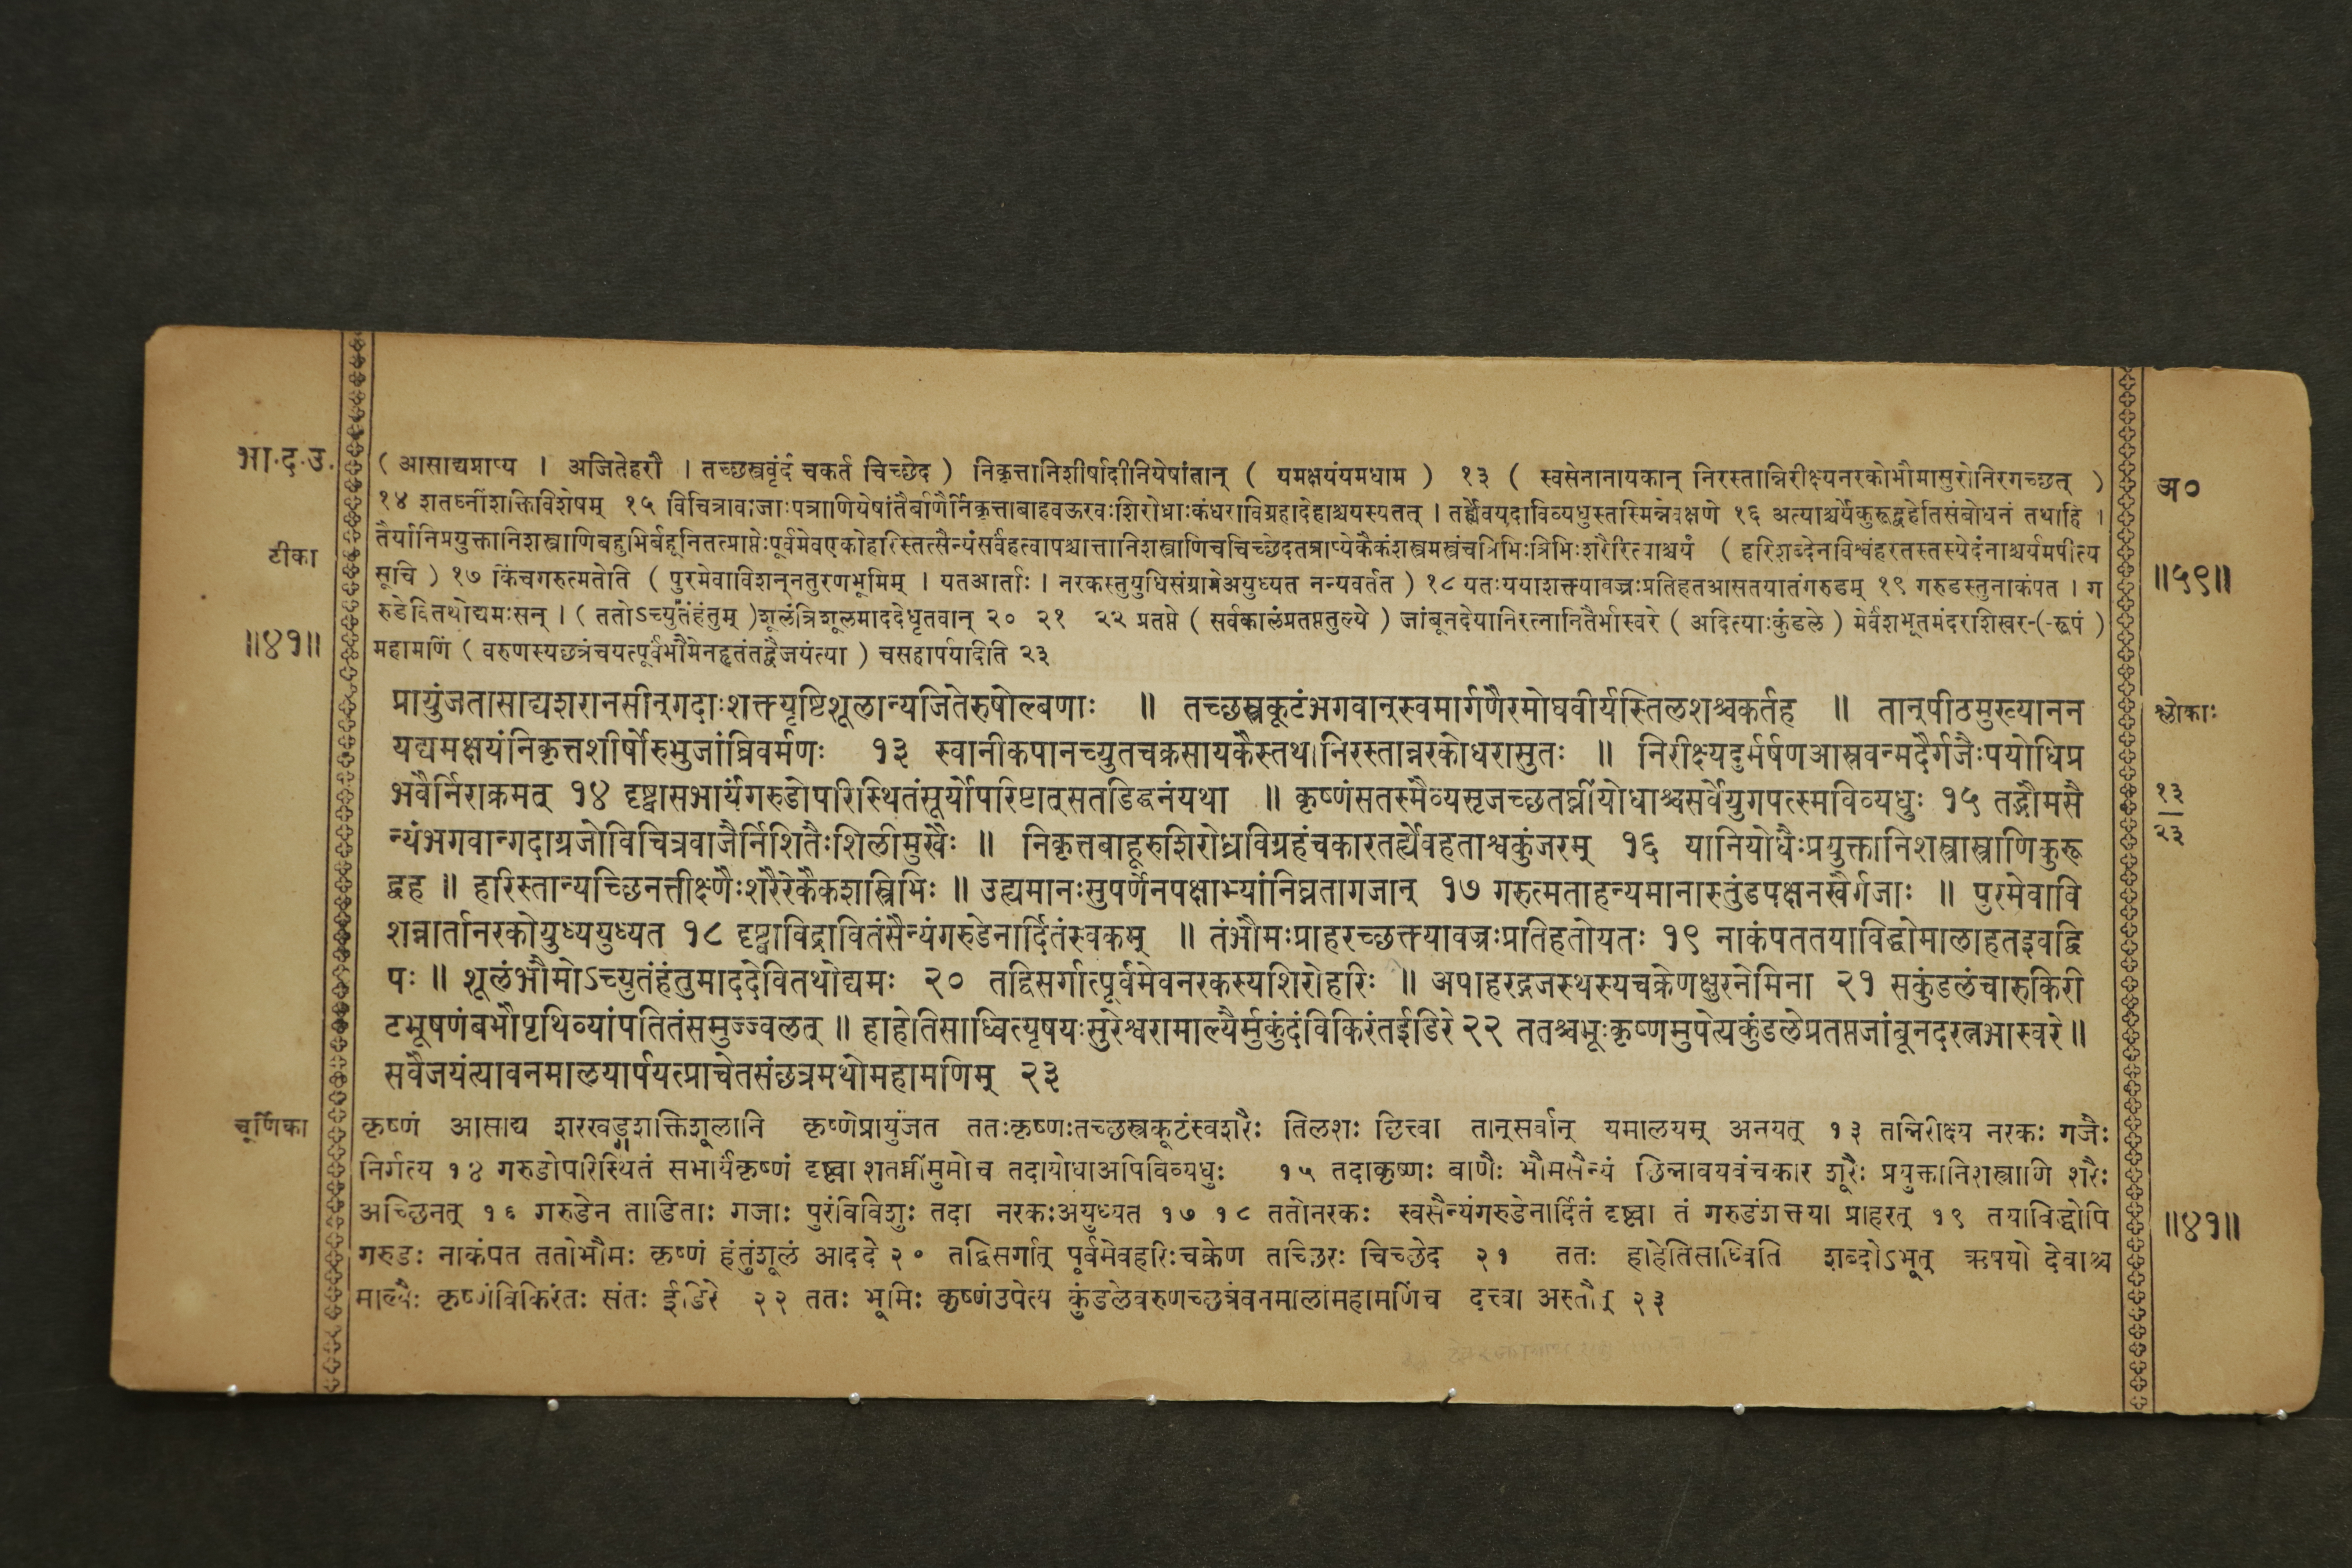 भा.द.उ.
टीका
॥४१॥
( आसाद्यप्राप्य । अजितेहरौ । तच्छस्त्रवृंदं चकर्त चिच्छेद ) निकृत्तानिशीर्षादीनियेषांतान् ( यमक्षयंयमधाम ) १३ ( स्वसेनानायकान् निरस्तान्निरीक्ष्यनरकोभौमासुरोनिरगच्छत् )
१४ शतघ्नींशक्तिविशेषम् १५ विचित्रावाजाःपत्राणियेषांतैर्बाणैर्निकृत्ताबाहवऊरवःशिरोध्राःकंधराविग्रहादेहाश्चयस्यतत् । तर्ह्येवयदाविव्यधुस्तस्मिन्नेवक्षणे १६ अत्याश्चर्यंकुरूद्वहेतिसंबोधनं तथाहि ।
तैर्यानिप्रयुक्तानिशस्त्राणिबहुभिर्बहूनितत्प्राप्तेःपूर्वमेवएकोहरिस्तत्सैन्यंसर्वंहत्वापश्चात्तानिशस्त्राणिचचिच्छेदतत्राप्येकैकंशस्त्रमस्त्रंचत्रिभिःत्रिभिःशरैरित्याश्चर्यं ( हरिशब्देनविश्वंहरतस्तस्येदंनाश्चर्यमपीत्य
सूचि ) १७ किंचगरुत्मतोति ( पुरमेवाविशन्ननतुरणभूमिम् । यतआर्ताः । नरकस्तुयुधिसंग्रामेअयुध्यत नन्यवर्तत ) १८ यतःययाशक्त्यावज्रःप्रतिहतआसतयातंगरुडम् १९ गरुडस्तुनाकंपत । ग
रुडेवितथोद्यमःसन् । ( ततोऽच्युतंहंतुम् )शूलंत्रिशूलमाददेधृतवान् २० २१ २२ प्रतप्ते ( सर्वकालंप्रतप्ततुल्ये ) जांबूनदेयानिरत्नानितैर्भास्वरे ( अदित्याःकुंडले ) मेर्वंशभूतमंदराशिखर-(-रूपं )
महामणिं ( वरुणस्यछत्रंचयत्पूर्वंभौमेनहृतंतद्वैजयंत्या ) चसहार्पयादिति २३
अ०
॥५९॥
प्रायुंजतासाद्यशरानसीन्गदाःशक्त्यृष्टिशूलान्यजितेरुषोल्बणाः ॥ तच्छस्त्रकूटंभगवान्स्वमार्गणैरमोघवीर्यस्तिलशश्चकर्तह ॥ तान्पीठमुख्यानन
यद्यमक्षयंनिकृत्तशीर्षोरुभुजांघ्रिवर्मणः १३ स्वानीकपानच्युतचक्रसायकैस्तथानिरस्तान्नरकोधरासुतः ॥ निरीक्ष्यदुर्मर्षणआस्रवन्मदैर्गजैःपयोधिप्र
भवैर्निराक्रमत् १४ दृष्ट्वासभार्यंगरुडोपरिस्थितंसूर्योपरिष्टात्सतडिद्घनंयथा ॥ कृष्णंसतस्मैव्यसृजच्छतघ्नींयोधाश्चसर्वेयुगपत्स्मविव्यधुः १५ तद्भौमसै
न्यंभगवान्गदाग्रजोविचित्रवाजैर्निशितैःशिलीमुखैः ॥ निकृत्तबाहूरुशिरोध्रविग्रहंचकारतर्ह्येवहताश्वकुंजरम् १६ यानियोधैःप्रयुक्तानिशस्त्रास्त्राणिकुरू
द्वह ॥ हरिस्तान्यच्छिनत्तीक्ष्णैःशरैरेकैकशस्त्रिभिः ॥ उह्यमानःसुपर्णेनपक्षाभ्यांनिघ्नतागजान् १७ गरुत्मताहन्यमानास्तुंडपक्षनखैर्गजाः ॥ पुरमेवावि
शन्नार्तानरकोयुध्ययुध्यत १८ दृष्ट्वाविद्रावितंसैन्यंगरुडेनार्दितंस्वकम् ॥ तंभौमःप्राहरच्छक्त्यावज्रःप्रतिहतोयतः १९ नाकंपततयाविद्धोमालाहतइवद्वि
पः ॥ शूलंभौमोऽच्युतंहंतुमाददेवितथोद्यमः २० तद्विसर्गात्पूर्वमेवनरकस्यशिरोहरिः ॥ अपाहरद्गजस्थस्यचक्रेणक्षुरनेमिना २१ सकुंडलंचारुकिरी
टभूषणंबभौपृथिव्यांपतितंसमुज्ज्वलत् ॥ हाहेतिसाध्वित्यृषयःसुरेश्वरामाल्यैर्मुकुंदंविकिरंतईडिरे २२ ततश्चभूःकृष्णमुपेत्यकुंडलेप्रतप्तजांबूनदरत्नभास्वरे ॥
सवैजयंत्यावनमालयार्पयत्प्राचेतसंछत्रमथोमहामणिम् २३
श्लोकाः
१३
२३
चूर्णिका
कृष्णं आसाद्य शरखड्गशक्तिशूलानि कृष्णेप्रायुंजत ततःकृष्णःतच्छस्त्रकूटंस्वशरैः तिलशः छित्त्वा तान्सर्वान् यमालयम् अनयत् १३ तन्निरीक्ष्य नरकः गजैः
निर्गत्य १४ गरुडोपरिस्थितं सभार्यंकृष्णं दृष्ट्वा शतघ्नींमुमोच तदायोधाअपिविव्यधुः १५ तदाकृष्णः बाणैः भौमसैन्यं छिन्नावयवंचकार शूरैः प्रयुक्तानिशस्त्राणि शरैः
अच्छिनत् १६ गरुडेन ताडिताः गजाः पुरंविविशुः तदा नरकःअयुध्यत १७ १८ ततोनरकः स्वसैन्यंगरुडेनार्दितं दृष्ट्वा तं गरुडंशक्त्या प्राहरत् १९ तयाविद्धोपि
गरुडः नाकंपत ततोभौमः कृष्णं हंतुंशूलं आददे २० तद्विसर्गात् पूर्वमेवहरिःचक्रेण तच्छिरः चिच्छेद २१ ततः हाहेतिसाध्विति शब्दोऽभूत् ऋषयो देवाश्च
माल्यैः कृष्णंविकिरंतः संतः ईडिरे २२ ततः भूमिः कृष्णंउपेत्य कुंडलेवरुणच्छत्रंवनमालांमहामणिंच दत्त्वा अस्तौत् २३
॥४१॥